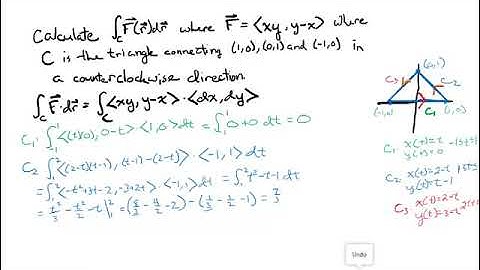 Calculate ∫_C F⃗(r⃗)dr⃗ where F⃗ = <xy, y-x> where
C is the triangle connecting (1,0), (0,1) and (-1,0) in
a counterclockwise direction
∫_C F⃗·dr⃗ = ∫_C <xy, y-x>·<dx, dy>
C₁: ∫_{-1}^{1} <(t)(0), 0-t>·<1,0>dt = ∫_{-1}^{1} 0+0 dt = 0
C₂ ∫_1^2 <(2-t)(t-1), (t-1)-(2-t)>·<-1,1>dt
= ∫_1^2 <-t²+3t-2, -3+2t>·<-1,1>dt = ∫_1^2 t²-t-1 dt
(0,1)
C₃
C₂
(-1,0)
C₁
(1,0)
C₁ x(t)=t
y(t)=0
C₂ x(t)=2-t
y(t)=t-1
C₃ x(t)=2-t
Undo